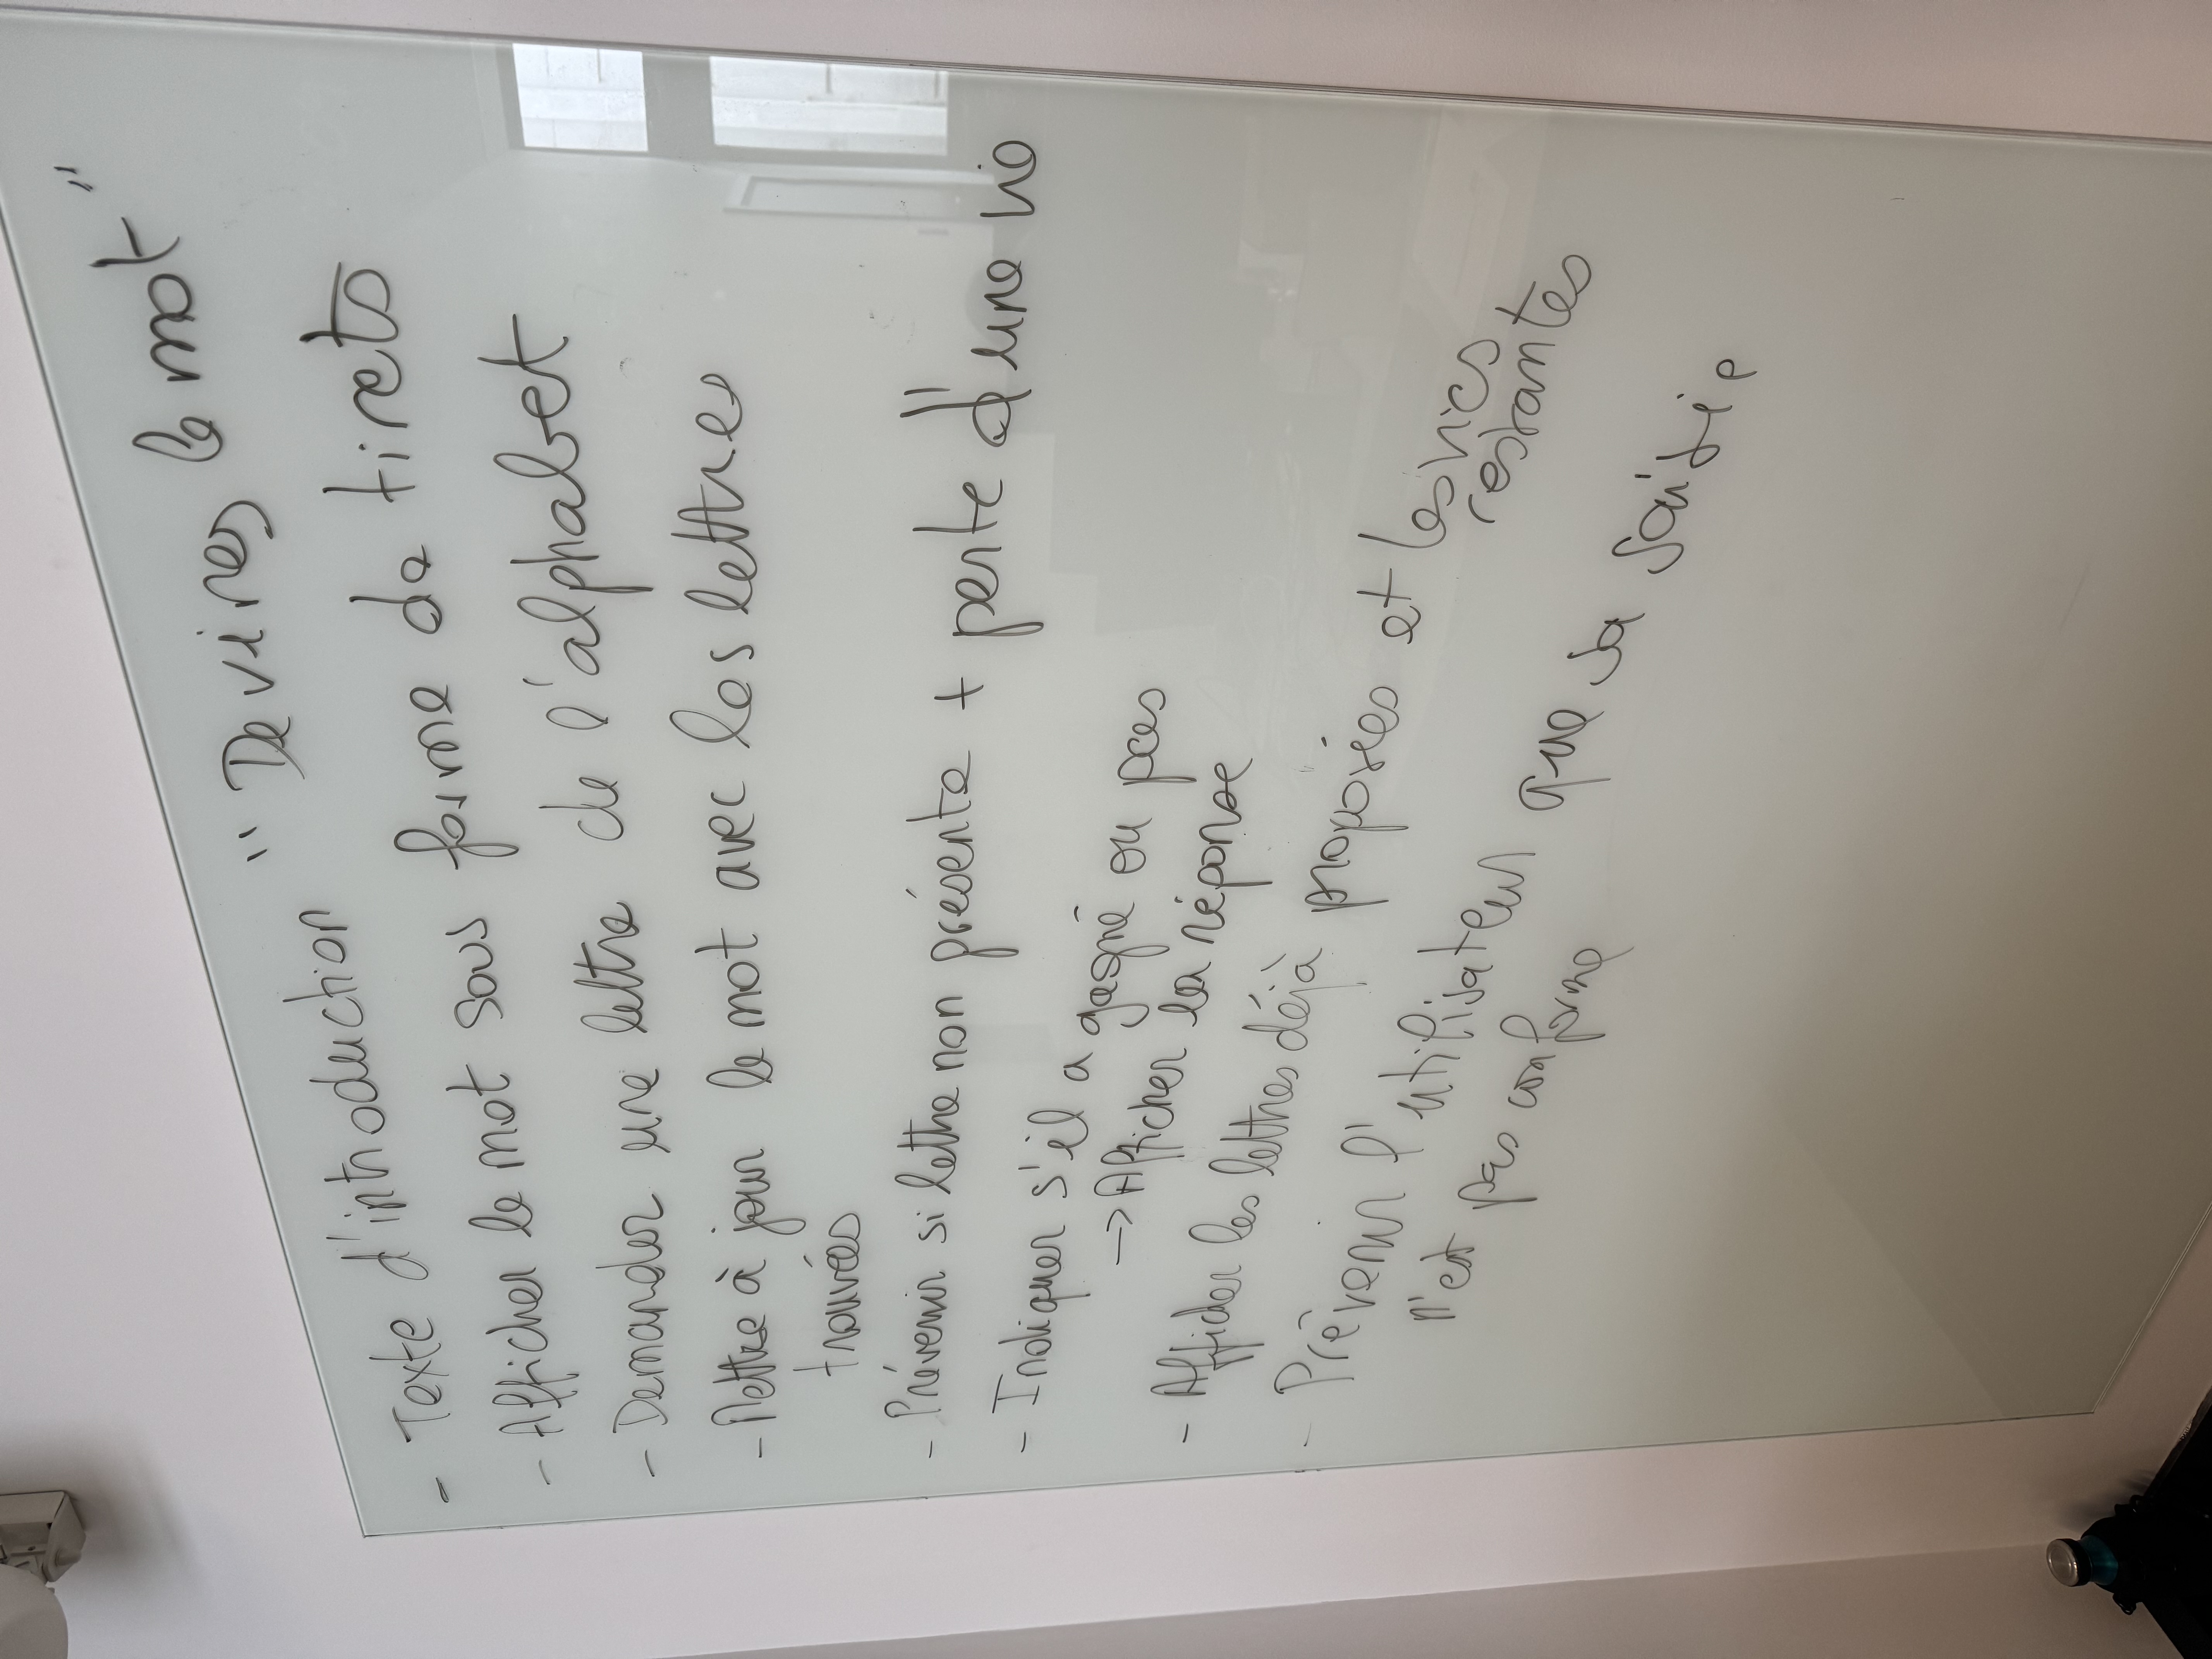 - Texte d'introduction "Devines le mot"
- Afficher le mot sous forme de tirets
- Demander une lettre de l'alphabet
- Mettre à jour le mot avec les lettres
trouvées
- Prévenir si lettre non présente + perte d'une vie
- Indiquer s'il a gagné ou pas
→ Afficher la réponse
- Afficher les lettres déjà proposées et les vies
restantes
- Prévenir l'utilisateur que sa saisie
n'est pas conforme